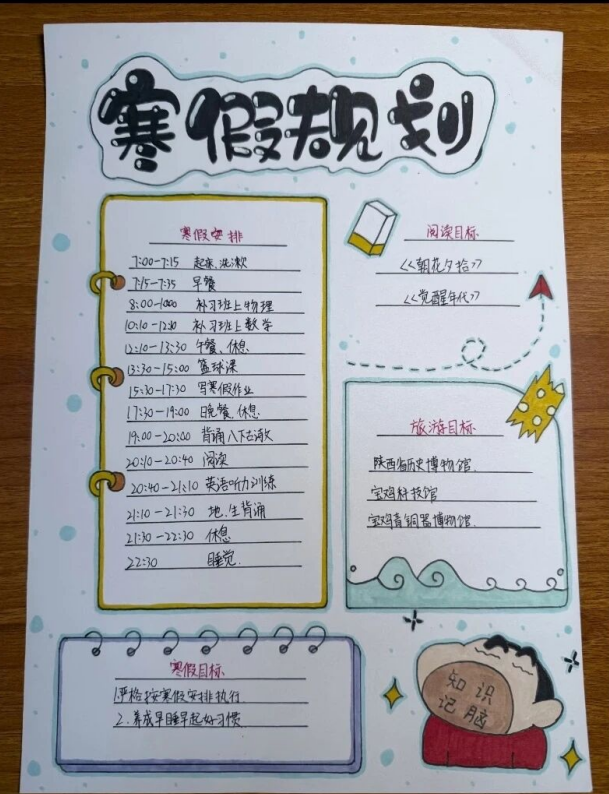 寒假规划
寒假安排
7:00-7:15 起床、洗漱
7:15-7:35 早餐
8:00-10:00 补习班上物理
10:10-12:10 补习班上数学
12:10-13:30 午餐、休息
13:30-15:00 篮球课
15:30-17:30 写寒假作业
17:30-19:00 晚餐、休息
19:00-20:00 背诵八下古诗文
20:10-20:40 阅读
20:40-21:10 英语听力训练
21:10-21:30 地、生背诵
21:30-22:30 休息
22:30 睡觉
阅读目标
《朝花夕拾》
《觉醒年代》
旅游目标
陕西历史博物馆
宝鸡科技馆
宝鸡青铜器博物馆
寒假目标
1.严格按寒假安排执行
2.养成早睡早起好习惯
知识
记脑